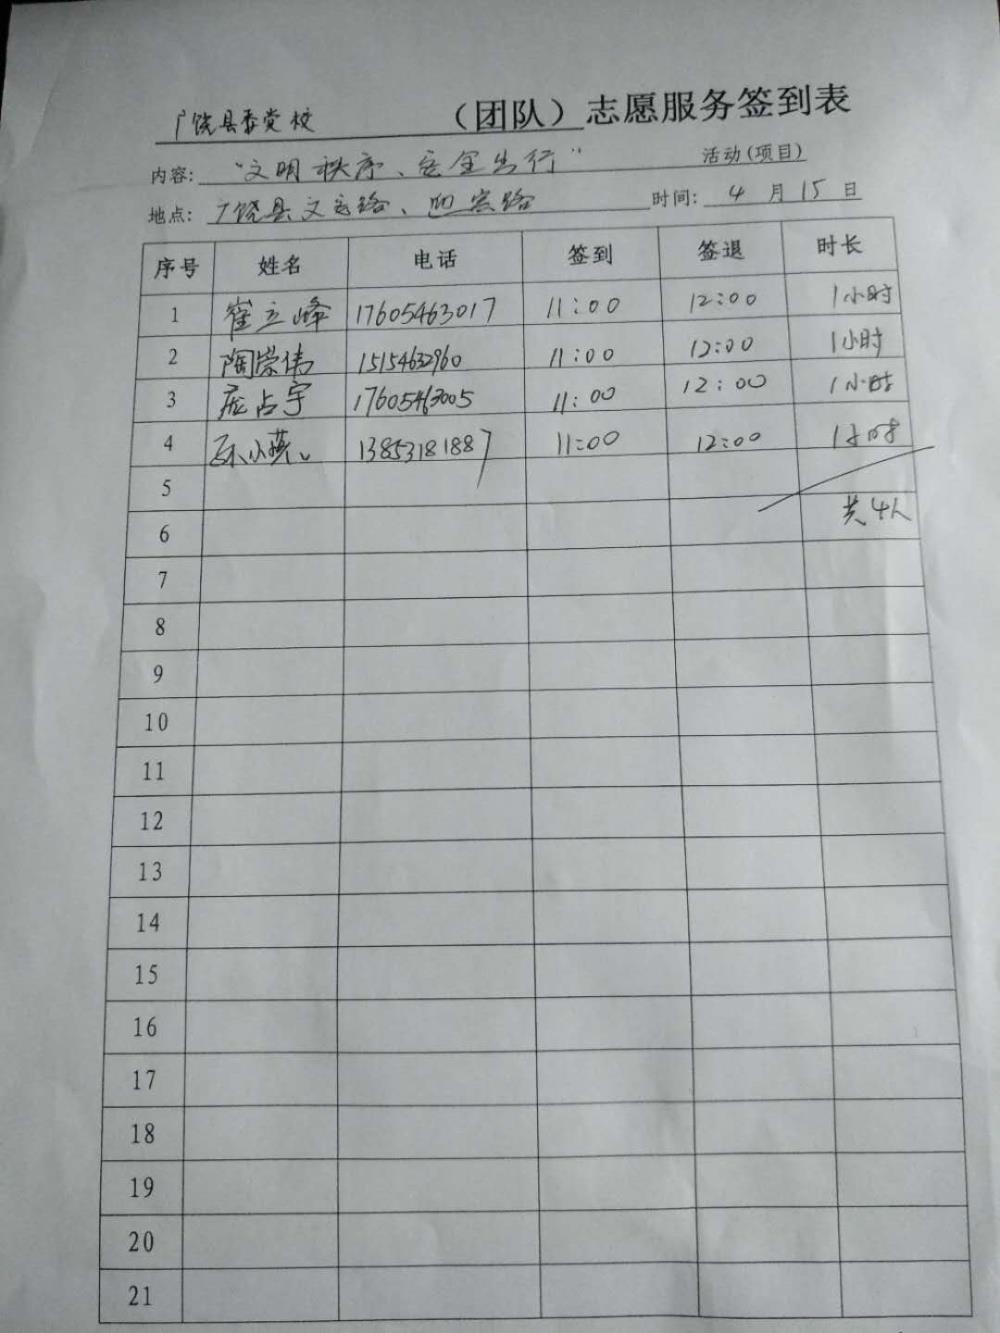 广饶县委党校（团队）志愿服务签到表
内容：“文明秩序、安全出行”活动(项目)
地点：广饶县文安路、迎宾路 时间：4月15日
序号 姓名 电话 签到 签退 时长
1 崔立峰 17605463017 11:00 12:00 1小时
2 陶荣伟 15154632960 11:00 12:00 1小时
3 庞占宇 17605463005 11:00 12:00 1小时
4 孙小燕 13853181887 11:00 12:00 1小时
5
6 共4人
7
8
9
10
11
12
13
14
15
16
17
18
19
20
21